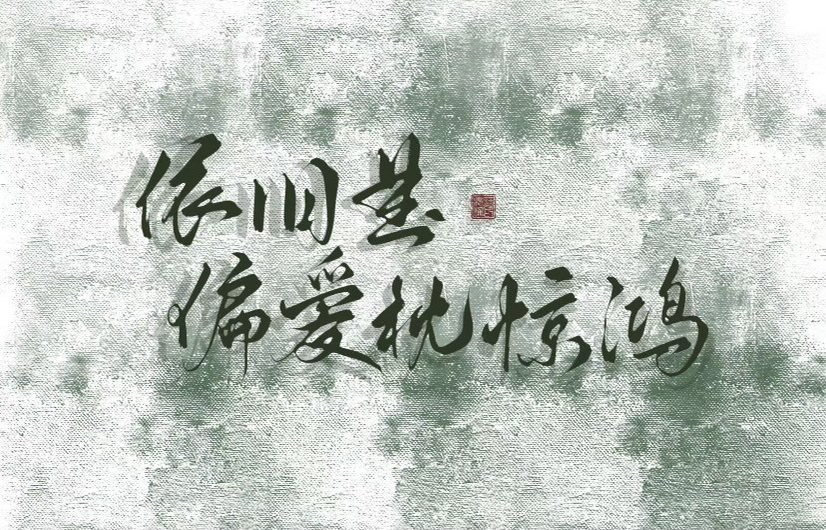 依旧是
偏爱枕惊鸿